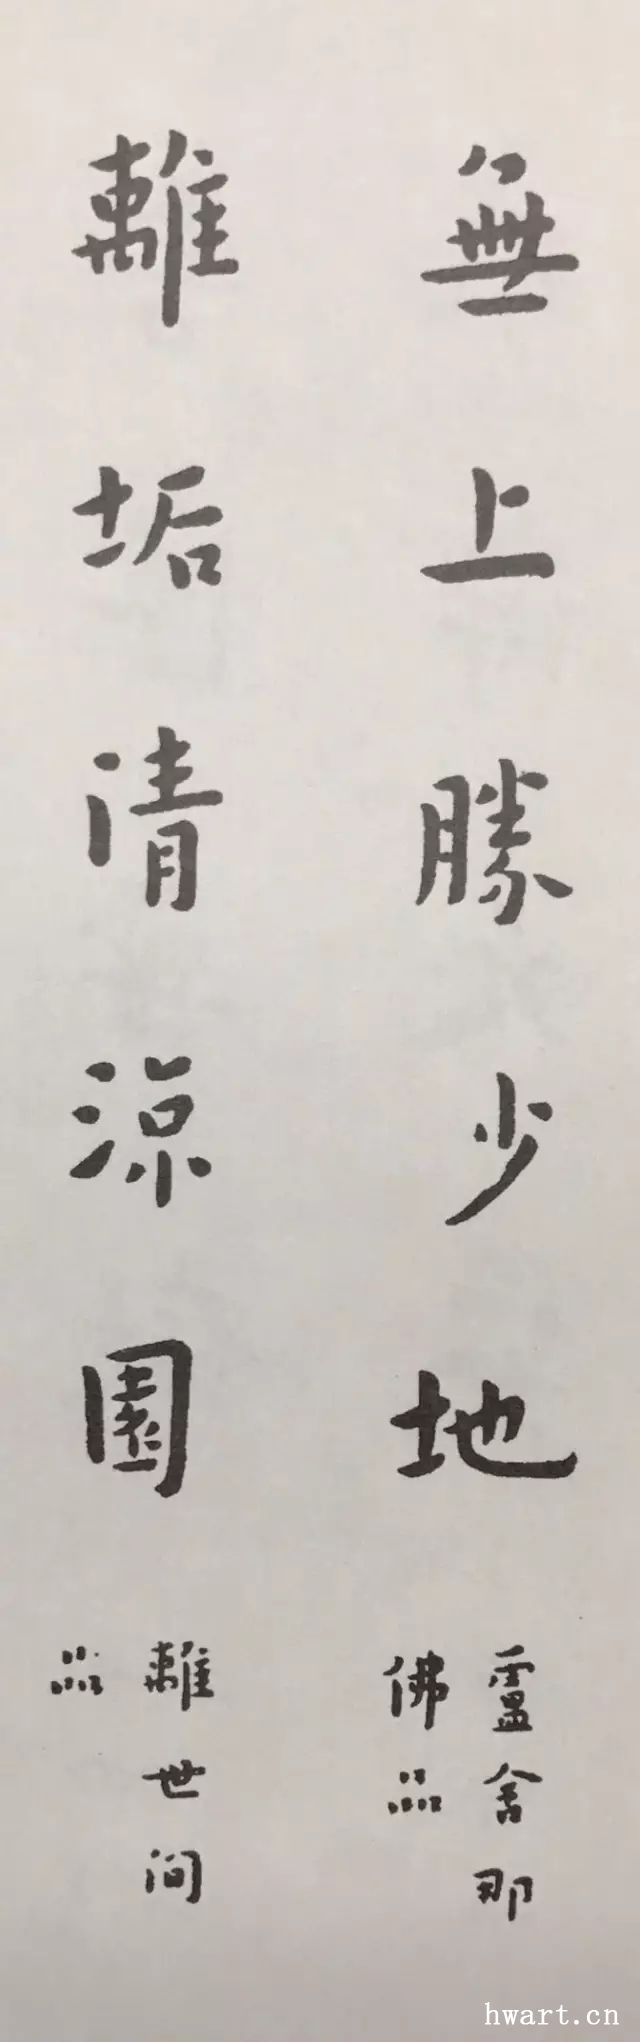 無上勝少地
盧舍那
佛品
離垢清涼園
離世间
品
hwart.cn